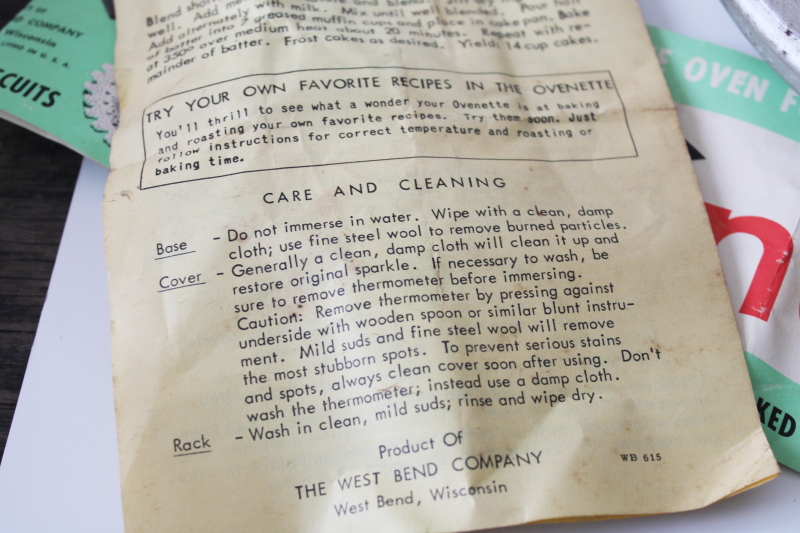 Blend
well. Add alternately with milk. Mix until well blended. Pour half
of batter into 7 greased muffin cups and place in cake pan. Bake
at 350° over medium heat about 20 minutes. Repeat with re-
mainder of batter. Frost cakes as desired. Yield: 14 cup cakes.
TRY YOUR OWN FAVORITE RECIPES IN THE OVENETTE
You'll thrill to see what a wonder your Ovenette is at baking
and roasting your own favorite recipes. Try them soon. Just
follow instructions for correct temperature and roasting or
baking time.
CARE AND CLEANING
Base - Do not immerse in water. Wipe with a clean, damp
cloth; use fine steel wool to remove burned particles.
Cover - Generally a clean, damp cloth will clean it up and
restore original sparkle. If necessary to wash, be
sure to remove thermometer before immersing.
Caution: Remove thermometer by pressing against
underside with wooden spoon or similar blunt instru-
ment. Mild suds and fine steel wool will remove
the most stubborn spots. To prevent serious stains
and spots, always clean cover soon after using. Don't
wash the thermometer; instead use a damp cloth.
Rack - Wash in clean, mild suds; rinse and wipe dry.
Product Of
THE WEST BEND COMPANY
West Bend, Wisconsin
WB 615
COMPANY
Wisconsin
LITHO IN U.S.A.
OVEN